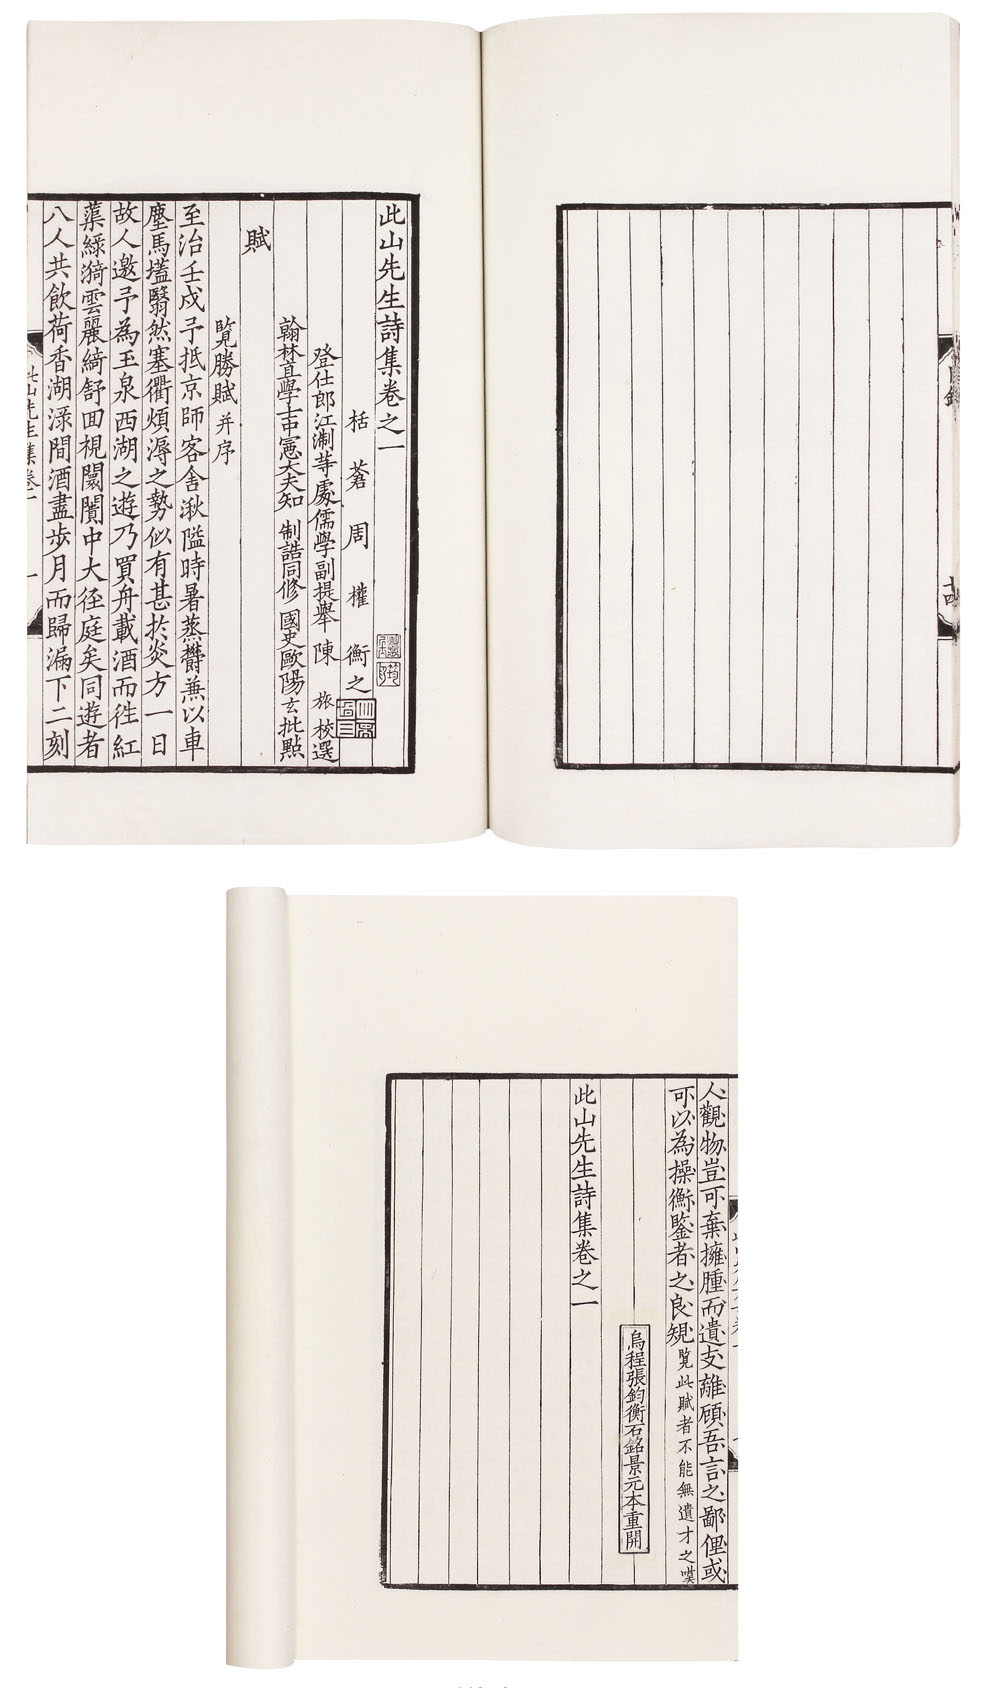 此山先生詩集卷之一
栝蒼周權衡之
登仕郎江淛等處儒學副提舉陳旅校選
翰林直學士中憲大夫知 制誥同修 國史歐陽玄批點
賦
覽勝賦并序
至治壬戍予抵京師客舍湫隘時暑蒸欝兼以車
塵馬壒翳然塞衢煩溽之勢似有甚扵炎方一日
故人邀予為玉泉西湖之遊乃買舟載酒而徃紅
蕖綠漪雲麗綺舒回視闤闠中大徑庭矣同遊者
八人共飲荷香湖淥間酒盡步月而歸漏下二刻
此山先生集卷一
一
十四
人觀物豈可棄擁腫而遺支離顧吾言之鄙俚或
可以為操衡鑒者之良規覽此賦者不能無遺才之嘆
烏程張鈞衡石銘景元本重開
此山先生詩集卷之一